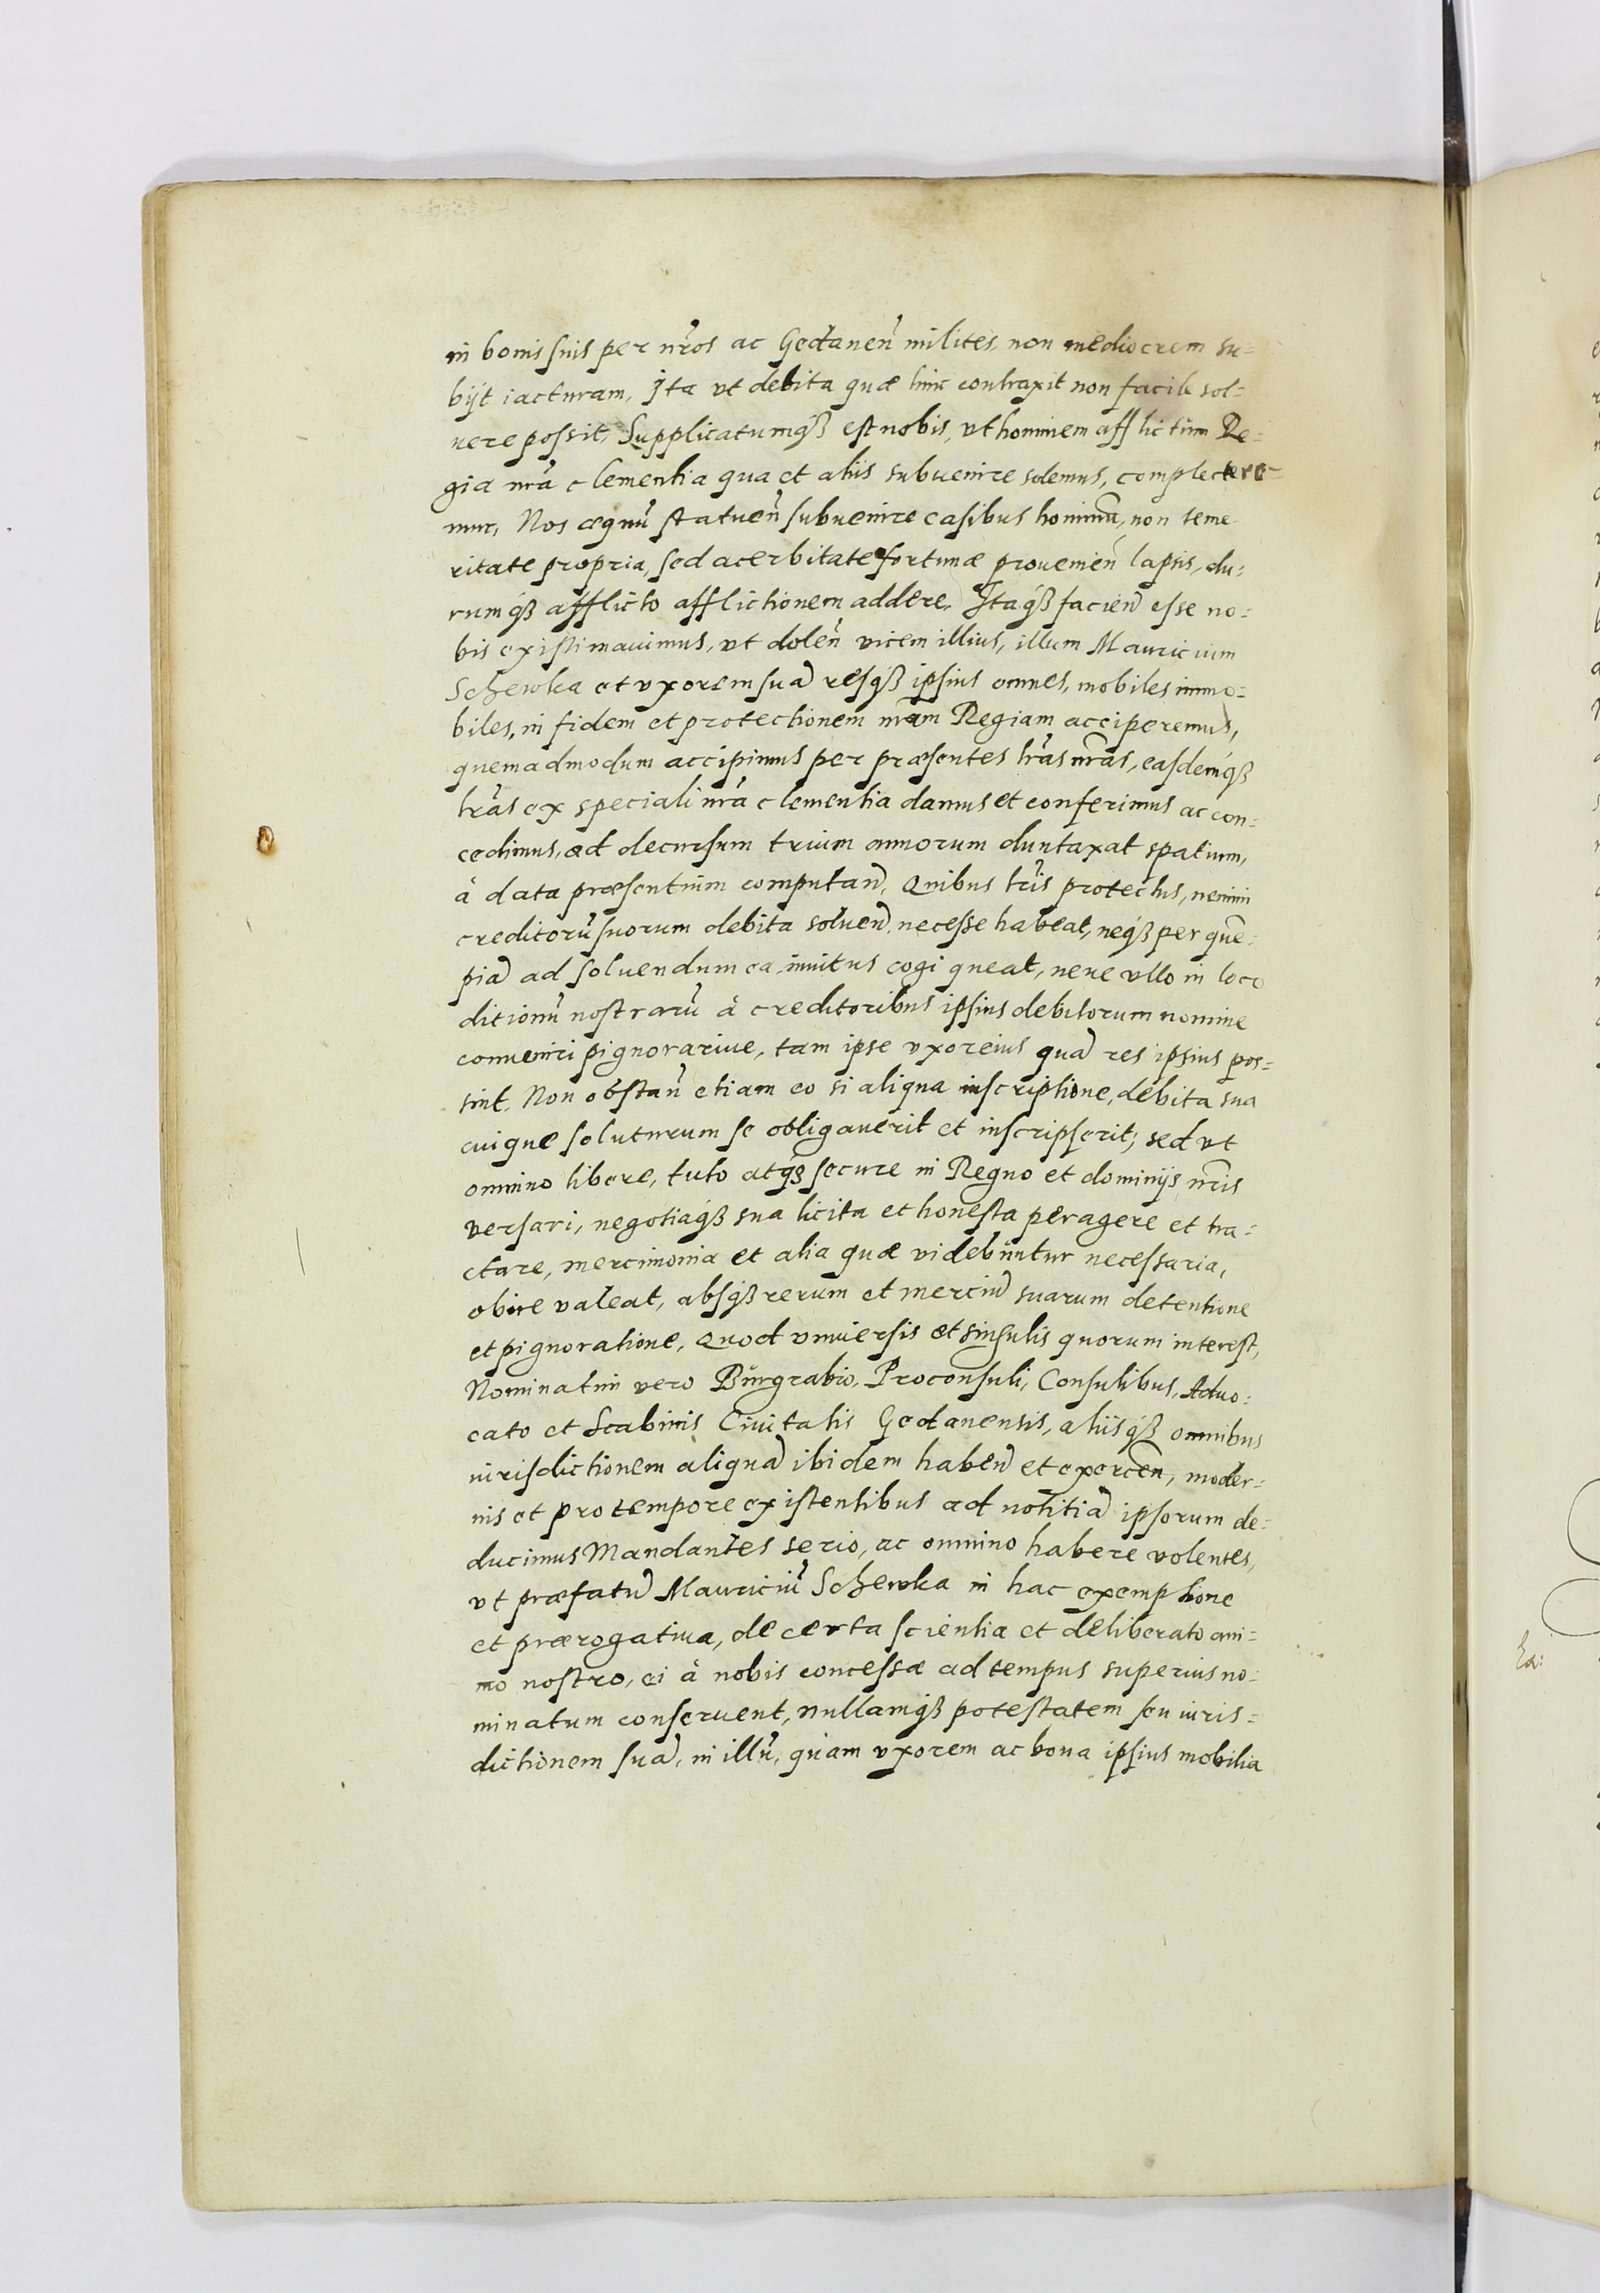 in bonis suis per nr̃os ac Gedanen̄ milites, non mediocrem su=
bijt iacturam, Ita vt debita quæ hinc contraxit non facile sol=
uere possit, Supplicatumqꝫ est nobis, vt hominem afflictum Re=
gia nrã clementia qua et alijs subuenire solemus, complectere=
mur, Nos æquũ statuen̄ subuenire casibus hominũ, non teme
ritate propria, sed acerbitate fortunæ prouenien̄ lapsis, du=
rumqꝫ afflicto afflictionem addere, Itaqꝫ facien̄ esse no=
bis existimauimus, vt dolen̄ vicem illius, illum Mauricium
Schewka et vxorem suã resqꝫ ipsius omnes, mobiles immo=
biles, in fidem et protectionem nrãm Regiam acciperemus,
quemadmodum accipimus per præsentes lrãs nrãs, easdemqꝫ
lrãs ex speciali nrã clementia damus et conferimus ac con=
cedimus, ad decursum trium annorum duntaxat spatium,
à data præsentium computan̄, Quibus lrĩs protectus, nemini
creditorũ suorum debita soluen̄ necesse habeat, neqꝫ per quẽ=
piã ad soluendum ea inuitus cogi queat, neue vllo in loco
ditionũ nostrarũ à creditoribus ipsius debitorum nomine
conueniri pignorariue, tam ipse vxor eius quã res ipsius pos=
sint. Non obstan̄ etiam eo si aliqua inscriptione, debita sua
cuique soluturum se obligauerit et inscripserit; sed vt
omnino libere, tuto atqꝫ secure in Regno et dominijs nrĩs
versari, negotiaqꝫ sua licita et honesta peragere et tra=
ctare, mercimonia et alia quæ videbuntur necessaria,
obire valeat, absqꝫ rerum et merciũ suarum detentione
et pignoratione, Quod vniuersis et singulis quorum interest,
Nominatim vero Burgrabio, Proconsuli, Consulibus, Aduo=
cato et Scabinis Ciuitatis Gedanensis, alijsqꝫ omnibus
iurisdictionem aliquã ibidem haben̄ et exercen̄, moder=
nis et pro tempore existentibus ad notitiã ipsorum de=
ducimus Mandantes serio, ac omnino habere volentes,
vt præfatũ Mauriciũ Schewka in hac exemptione
et prærogatiua, de certa scientia et deliberato ani=
mo nostro, ei à nobis concessa ad tempus superius no=
minatum conseruent, nullamqꝫ potestatem seu iuris=
dictionem suã, in illũ, quam vxorem ac bona ipsius mobilia